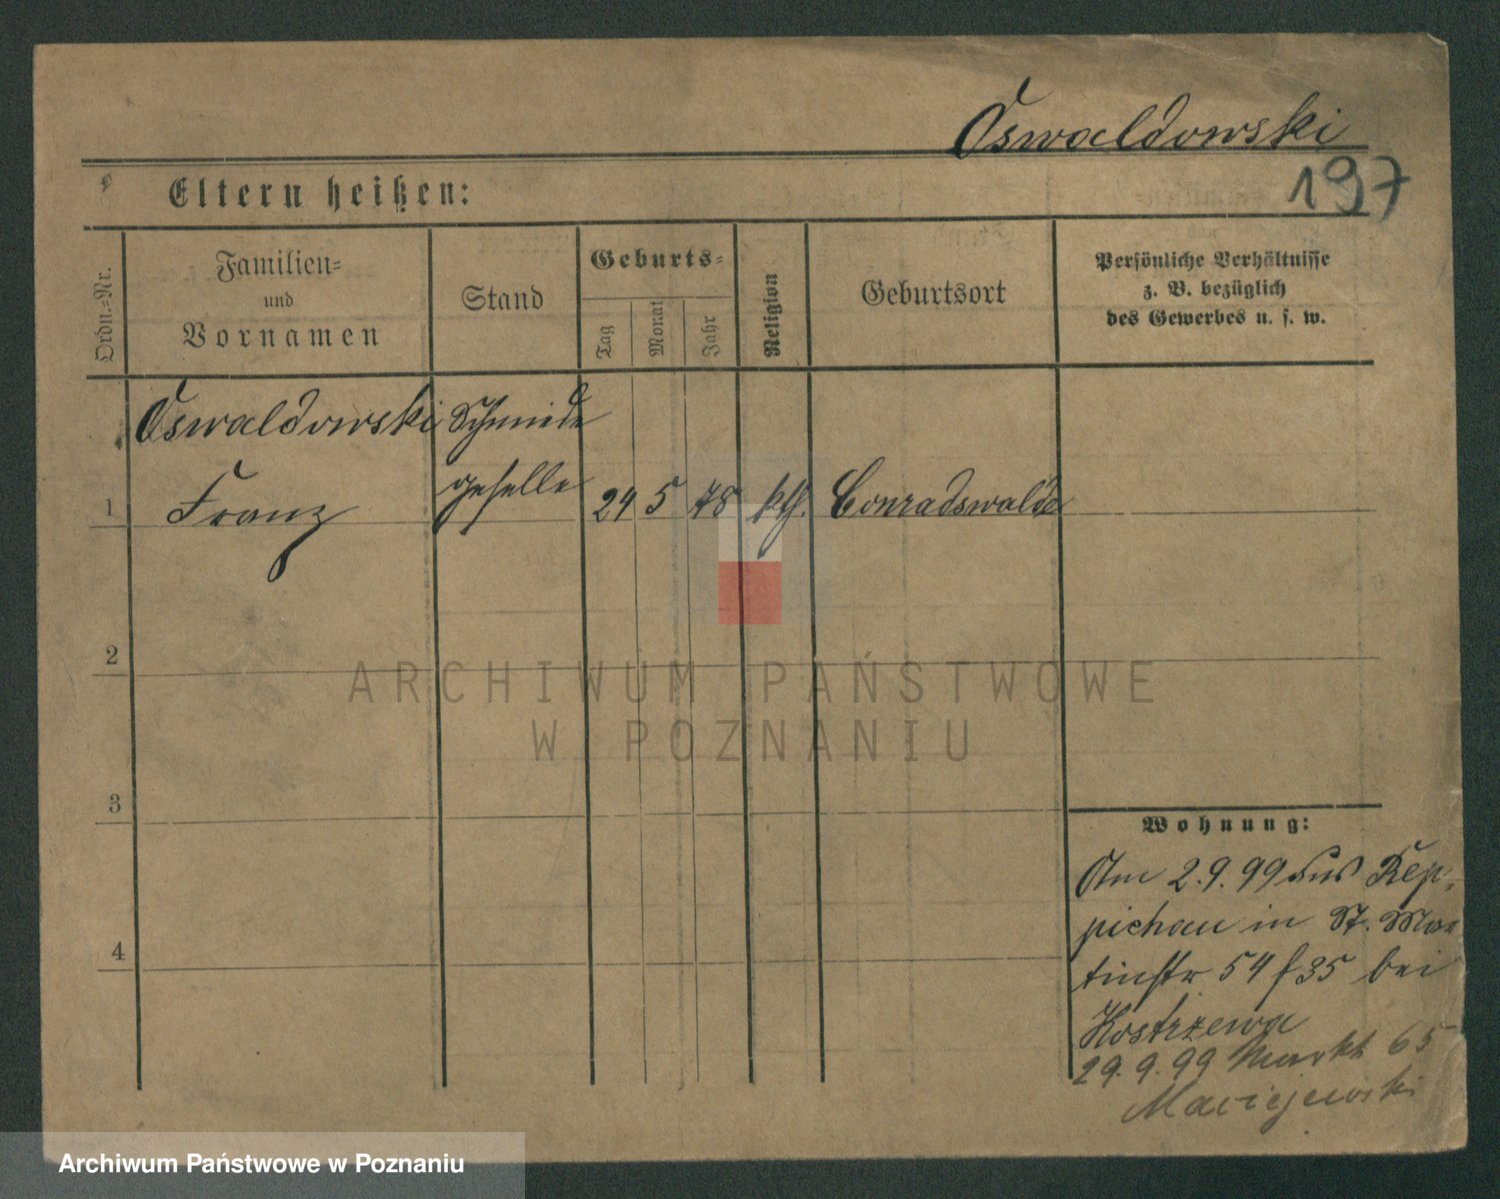 Oswaldowski
197
Eltern heißen:
Ordn.-Nr.
Familien-
und
Vornamen
Stand
Geburts-
Tag
Monat
Jahr
Religion
Geburtsort
Persönliche Verhältnisse
z. B. bezüglich
des Gewerbes u. s. w.
Oswaldowski Schmiede
1 Franz geselle 24 5 78 kth. Conradswalde
2
3
4
Wohnung:
Am 2.9.99 aus Rep-
pichau in St. Mar
tinstr 54 f 35 bei
Kostrzewa
29.9.99 Markt 65
Maciejewski
ARCHIWUM PAŃSTWOWE
W POZNANIU
Archiwum Państwowe w Poznaniu